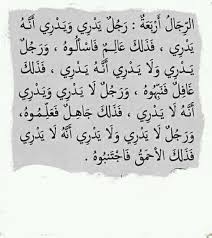 الرِّجَالُ أَرْبَعَةٌ : رَجُلٌ يَدْرِي وَيَدْرِي أَنَّهُ
يَدْرِي ، فَذَلِكَ عَالِمٌ فَاسْأَلُوهُ ، وَرَجُلٌ
يَدْرِي وَلَا يَدْرِي أَنَّهُ يَدْرِي ، فَذَلِكَ
غَافِلٌ فَنَبِّهُوهُ ، وَرَجُلٌ لَا يَدْرِي وَيَدْرِي
أَنَّهُ لَا يَدْرِي ، فَذَلِكَ جَاهِلٌ فَعَلِّمُوهُ ،
وَرَجُلٌ لَا يَدْرِي وَلَا يَدْرِي أَنَّهُ لَا يَدْرِي
فَذَلِكَ الأَحْمَقُ فَاجْتَنِبُوهُ .